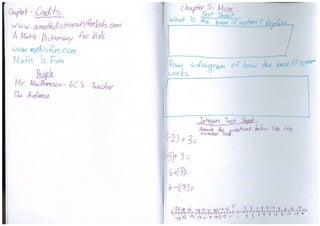 Chapter - Credits
www.amathdictionaryforkids.com
A Math Dictionary for kids
www.mathisfun.com
Math is Fun
People
Mr. - 6C's Teacher
The Audience
Chapter 5 - More
Test Sheet
What is the base 10 system? Explain
Draw a diagram of how the base 10 system
works.
Integers Test Sheet
Answer the questions below. Use the
number line.
(-2) + 3 =
(5)+ 3 =
6+(-3)=
6-(-8)=